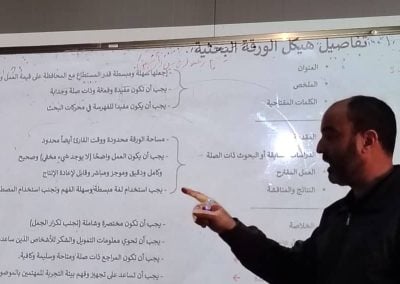 تفاصيل هيكل الورقة البحثية
العنوان
الملخص
الكلمات المفتاحية
- إجعلها سهلة ومبسطة قدر المستطاع مع المحافظة على قيمة العمل و
- يجب أن تكون مفيدة وفعالة وذات صلة وجذابة
- يجب أن يكون مفيدا للفهرسة في محركات البحث
المقدمة
سابقة أو البحوث ذات الصلة
العمل المقترح
النتائج والمناقشة
- مساحة الورقة محدودة ووقت القارئ أيضاً محدود
- يجب أن يكون العمل واضحًا (لا يوجد شيء مخفي) وصحيح
وكامل ودقيق وموجز ومباشر وقابل لإعادة الإنتاج
- يجب استخدام لغة مبسطة وسهلة الفهم وتجنب استخدام المصط
الخلاصة
- يجب أن تكون مختصرة وشاملة (تجنب تكرار الجمل)
- يجب أن تحوي معلومات التمويل والشكر للأشخاص الذين ساعد
- يجب أن تكون المراجع ذات صلة ومتاحة وسليمة وكافية.
- يجب أن تساعد على تجهيز وفهم بيئة التجربة للمهتمين بالموضو